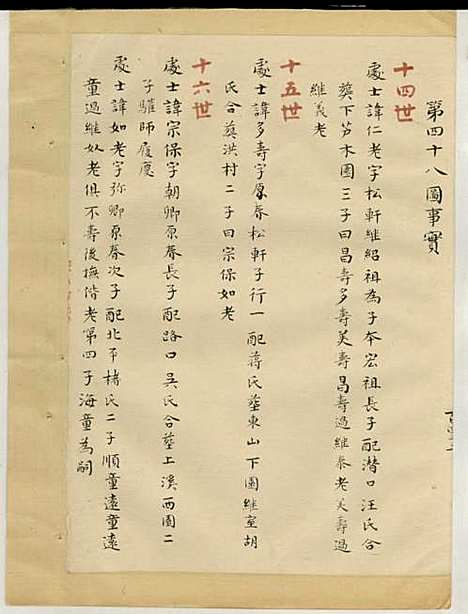 第四十八圖事實
十四世
處士諱仁老字松軒継紹祖為子本宏祖長子配潛口汪氏合
葬下笏木園三子曰昌壽多壽美壽昌壽過継泰老美壽過
継義老
十五世
處士諱多壽字原春松軒子行一配蔣氏塟東山下園継室胡
氏合葬洪村二子曰宗保如老
十六世
處士諱宗保字朝卿原春長子配路口吳氏合塟上溪西園二
子驢師履慶
處士諱如老字弥卿原春次子配北下楮氏二子順童遠童遠
童過継奴老俱不壽後撫偕老第四子海童為嗣